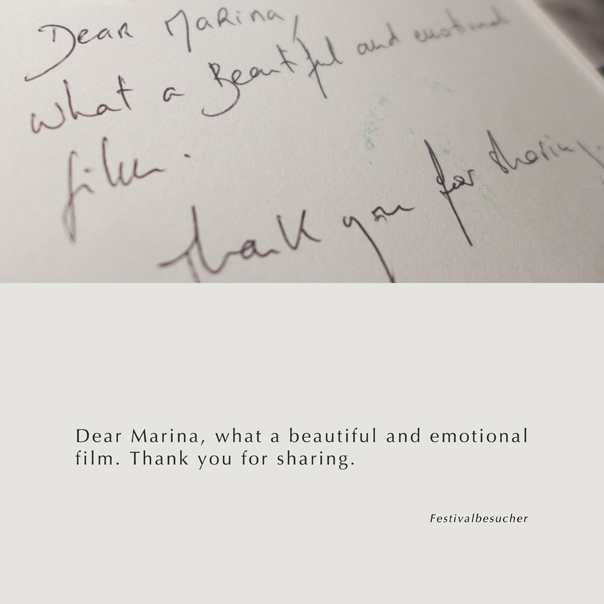 Dear Marina,
what a Beautiful and emotional
film.
Thank you for sharing.
Dear Marina, what a beautiful and emotional
film. Thank you for sharing.
Festivalbesucher